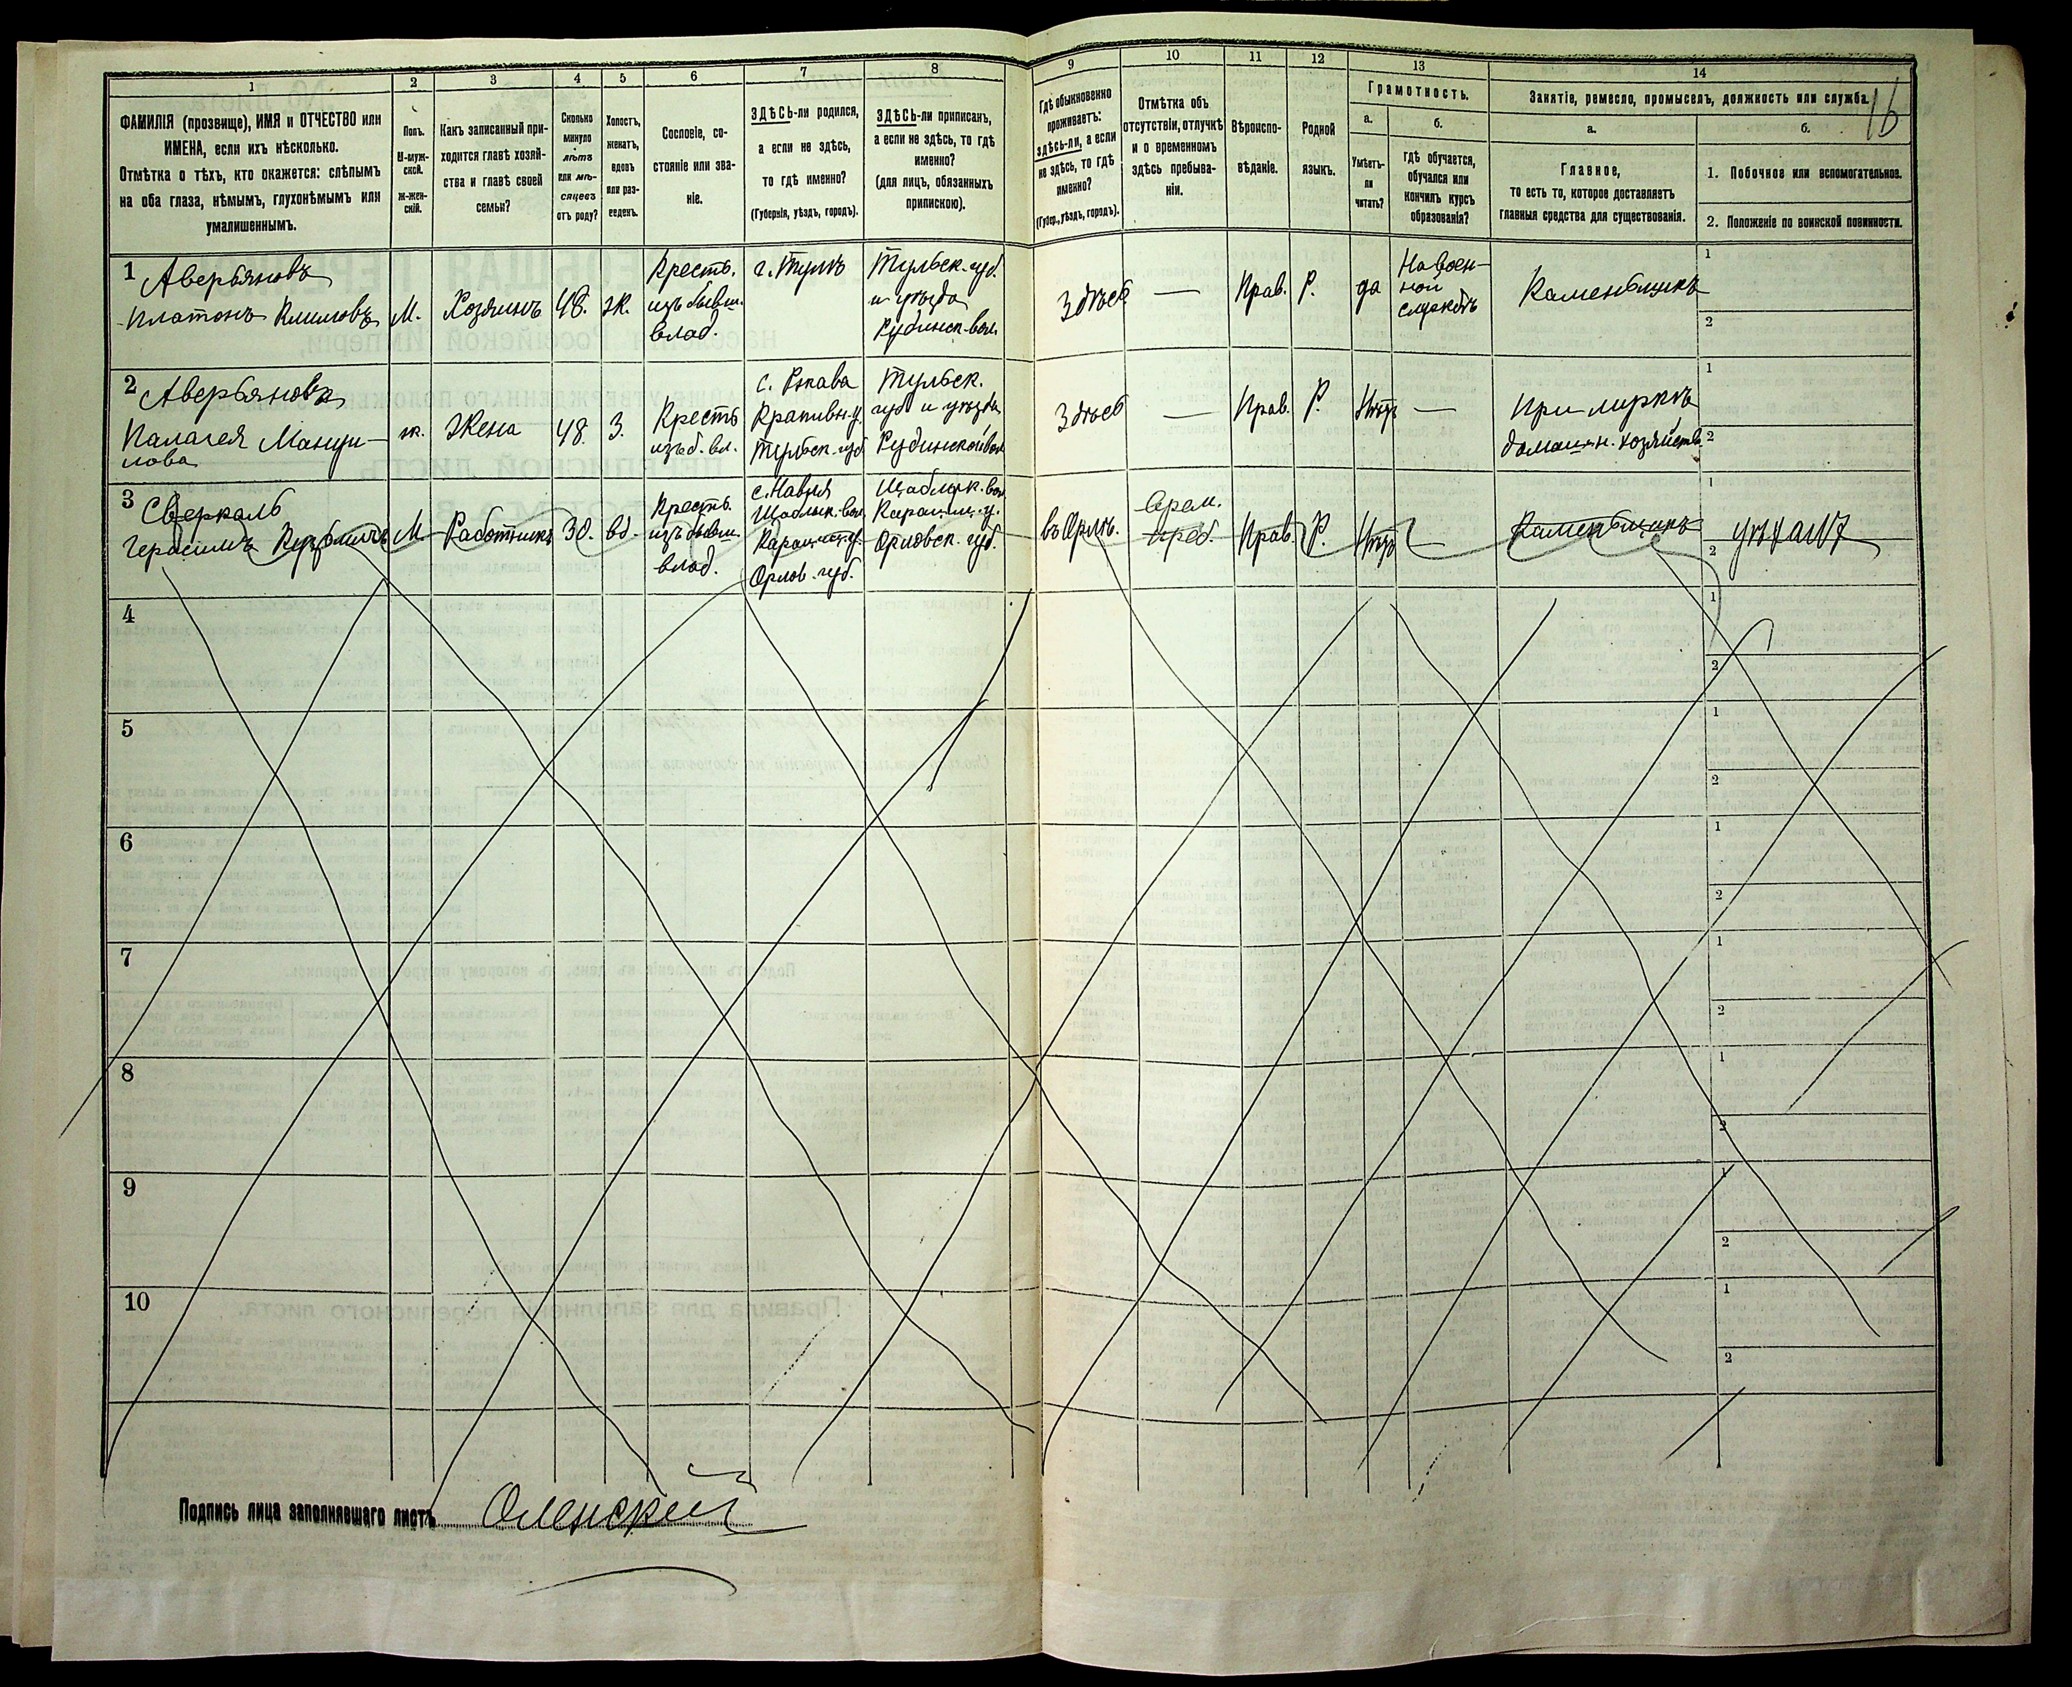 1
2
3
4
5
6
7
8
9
10
11
12
13
14
16
ФАМИЛІЯ (прозвище), ИМЯ и ОТЧЕСТВО или
ИМЕНА, если ихъ нѣсколько.
Отмѣтка о тѣхъ, кто окажется: слѣпымъ
на оба глаза, нѣмымъ, глухонѣмымъ или
умалишеннымъ.
Полъ.
М-муж-
ской.
Ж-жен-
скій.
Какъ записанный при-
ходится главѣ хозяй-
ства и главѣ своей
семьи?
Сколько
минуло
лѣтъ
или мѣ-
сяцевъ
отъ роду?
Холостъ,
женатъ,
вдовъ
или раз-
веденъ.
Сословіе, со-
стояніе или зва-
ніе.
ЗДѢСЬ-ли родился,
а если не здѣсь,
то гдѣ именно?
(Губернія, уѣздъ, городъ).
ЗДѢСЬ-ли приписанъ,
а если не здѣсь, то гдѣ
именно?
(для лицъ, обязанныхъ
припискою).
Гдѣ обыкновенно
проживаетъ:
здѣсь-ли, а если
не здѣсь, то гдѣ
именно?
(Губер., уѣздъ, городъ).
Отмѣтка объ
отсутствіи, отлучкѣ
и о временномъ
здѣсь пребыва-
ніи.
Вѣроиспо-
вѣданіе.
Родной
языкъ.
Грамотность.
а.
Умѣетъ-
ли
читать?
б.
гдѣ обучается,
обучался или
кончилъ курсъ
образованія?
Занятіе, ремесло, промыселъ, должность или служба.
а.
Главное,
то есть то, которое доставляетъ
главныя средства для существованія.
б.
1. Побочное или вспомогательное.
2. Положеніе по воинской повинности.
1 Аверьяновъ
Платонъ Климовъ
М.
Хозяинъ
48.
ж.
Крестъ.
изъ бывш.
влад.
г. Тулѣ
Тульск. губ.
и уѣзда
Рудинск. вол.
Здѣсь
—
Прав.
Р.
да
На воен-
ной
службѣ
Каменьщикъ
1
2
2 Аверьянова
Палагея Мануи-
лова
ж.
Жена
48.
З.
Крестъ
изъ б. вл.
с. Ржава
Крапивн. у.
Тульск. губ.
Тульск.
губ и уѣзда
Рудинской вол
Здѣсь
—
Прав.
Р.
Нѣтъ
—
При мужѣ
домашн. хозяйств.
1
2
3 Сверкаль
Герасимъ Кузьмичъ
М
Работникъ
30.
вд.
Крестъ.
изъ бывш.
влад.
с. Навля
Шаблык. вол.
Карачевск. у.
Орлов. губ.
Шаблык. вол.
Карач. у.
Орловск. губ.
въ Орлѣ.
врем.
преб.
Прав.
Р.
Нѣтъ
—
Каменьщикъ
1
2
4
1
2
5
1
2
6
1
2
7
1
2
8
1
2
9
1
2
10
1
2
Подпись лица заполнявшаго листъ Оленскій